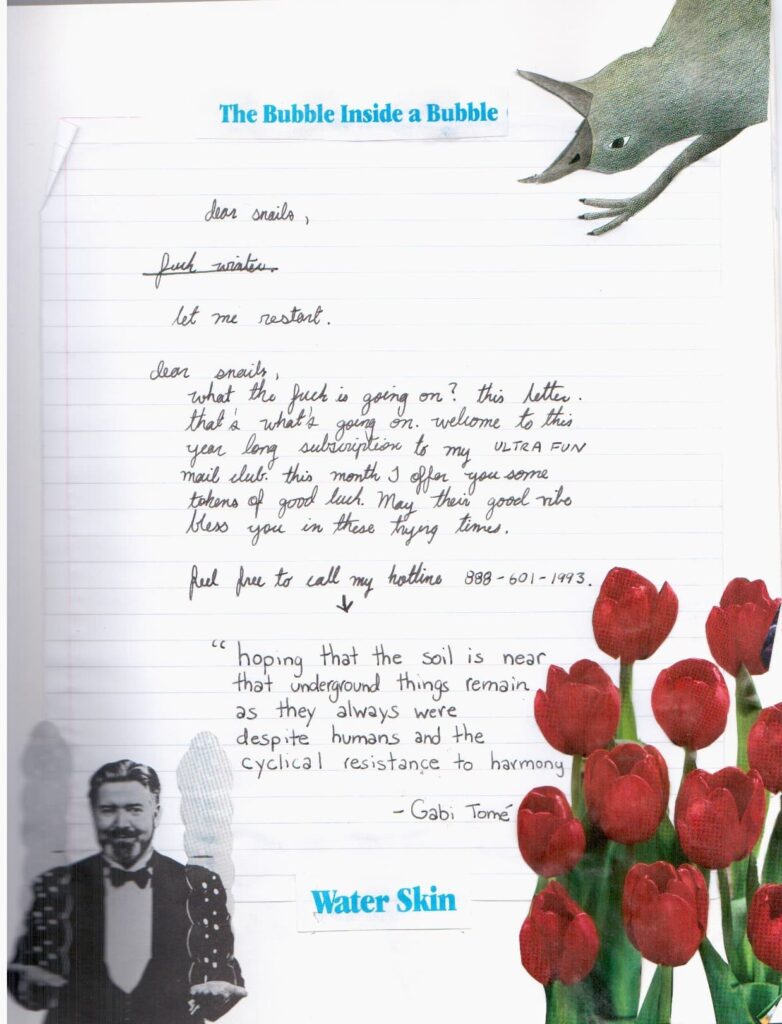 The Bubble Inside a Bubble
dear snails,
fuck winter.
let me restart.
dear snails,
what the fuck is going on? this letter.
that's what's going on. welcome to this
year long subscription to my ULTRA FUN
mail club. this month I offer you some
tokens of good luck. May their good vibs
bless you in these trying times.
feel free to call my hotline 888-601-1993.
"hoping that the soil is near
that underground things remain
as they always were
despite humans and the
cyclical resistance to harmony
- Gabi Tomé
Water Skin